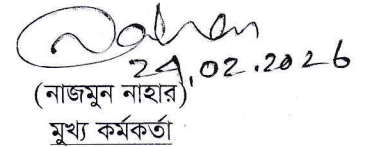 24.02.2026
(নাজমুন নাহার)
মুখ্য কর্মকর্তা